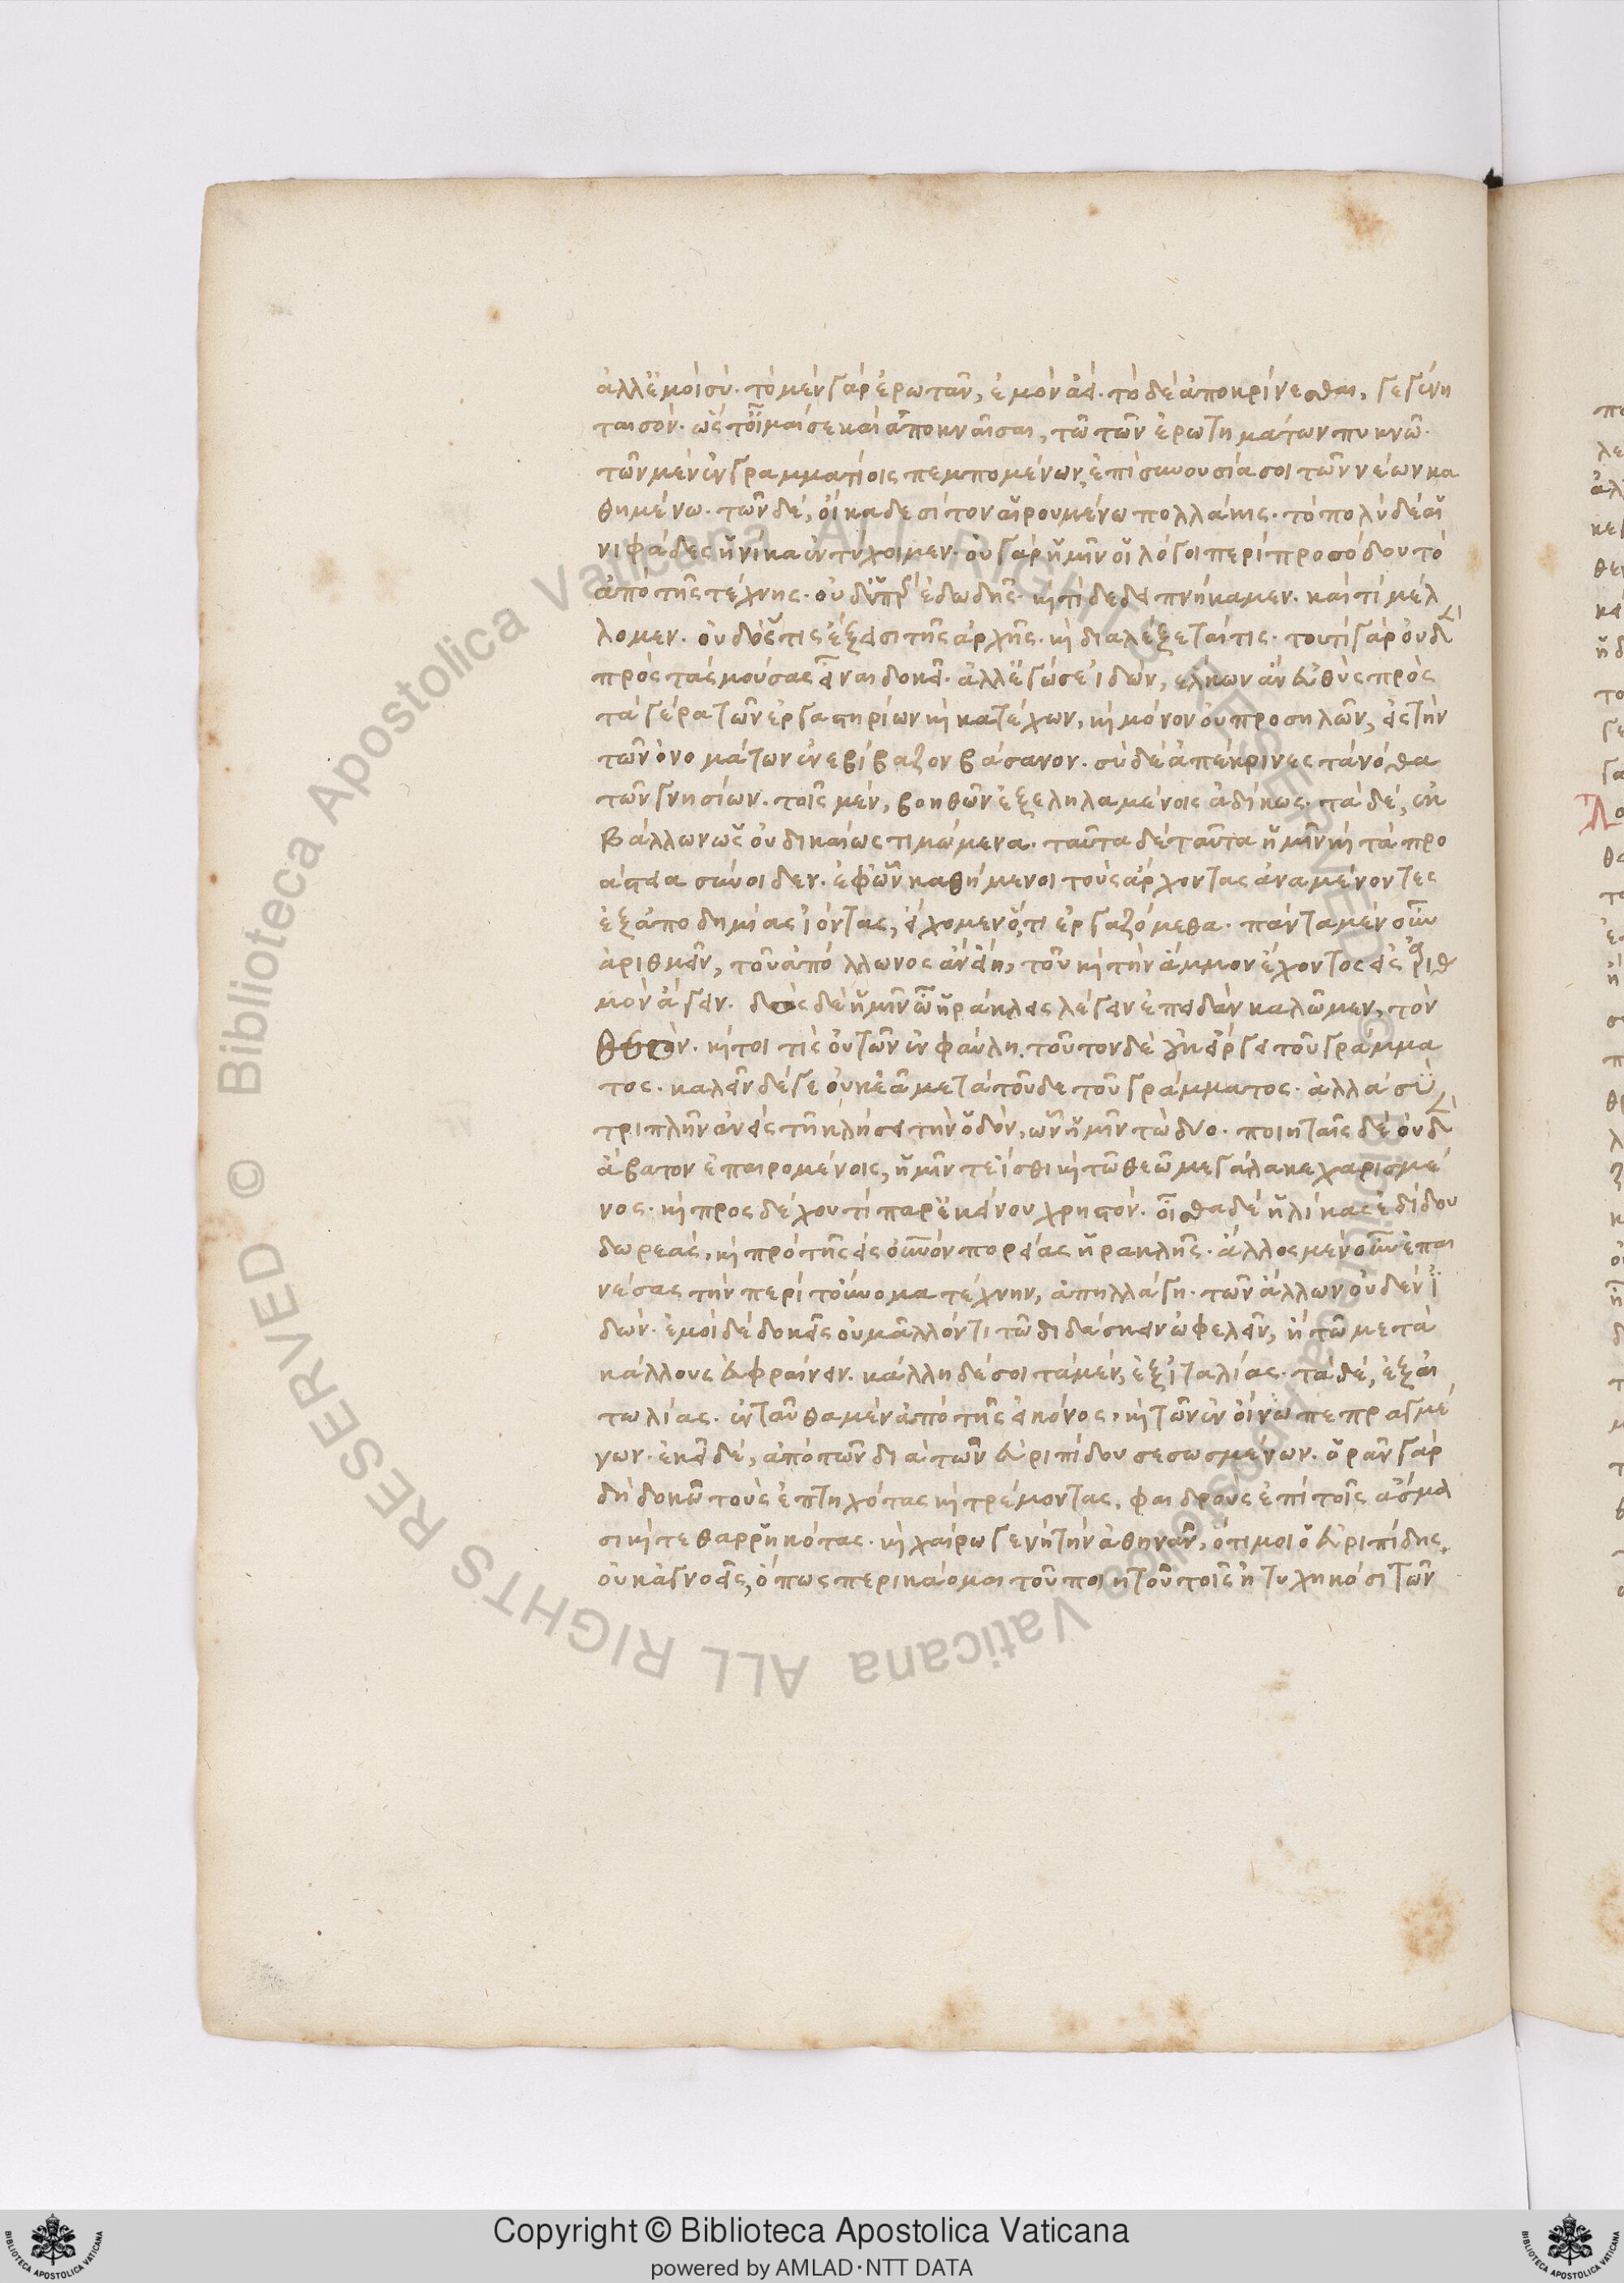 ἀλλ᾽ ἐμοὶ σύ. τὸ μὲν γὰρ ἐρωτᾶν, ἐμὸν ἀεί. τὸ δὲ ἀποκρίνεσθαι, γεγένη
ται σόν. ὥς τοι οἶμαί σε καὶ ἀποκναῖσαι, τῶ τῶν ἐρωτημάτων πυκνῶ.
τῶν μὲν ἐν γραμματίοις πεμπομένων, ἐπὶ συνουσία σοι τῶν νέων κα
θημένω. τῶν δέ, οἴκαδε σίτον αἱρουμένω πολλάκις. τὸ πολὺ δὲ αἱ
νιφάδες ἡνίκα ἐντύχοιμεν. οὐ γὰρ ἡμῖν οἱ λόγοι περὶ προσόδου τὸ
ἀπὸ τῆς τέχνης. οὐδ᾽ ὑπὲρ ἐδωδῆς. καὶ τί δεδειπνήκαμεν. καὶ τί μέλ
λομεν. οὐδ᾽ ὅστις ἕξει τῆς ἀρχῆς. καὶ διαλέξεταί τις. τουτὶ γὰρ οὐδὲ
πρὸς τὰς μούσας εἶναι δοκεῖ. ἀλλ᾽ ἐγώ σε ἰδών, ἕλκων ἂν εὐθὺς πρὸς
τὰ γέρα τῶν ἐργαστηρίων καὶ κατέχων, καὶ μόνον οὐ προσηλῶν, εἰς τὴν
τῶν ὀνομάτων ἐνεβίβαζον βάσανον. σὺ δὲ ἀπέκρινες τὰ νόθα
τῶν γνησίων. τοῖς μέν, βοηθῶν ἐξεληλαμένοις ἀδίκως. τὰ δέ, ἐκ
βάλλων ὡς οὐ δικαίως τιμώμενα. ταῦτα δὲ ταῦτα ἡμῖν καὶ τὰ προ
άστεια σύνοιδεν. ἐφ᾽ ὧν καθήμενοι τοὺς ἄρχοντας ἀναμένοντες
ἐξ ἀποδημίας ἰόντας, εἴχομεν ὅ,τι ἐργαζόμεθα. πάντα μὲν οὖν
ἀριθμεῖν, τοῦ ἀπόλλωνος ἂν εἴη, τοῦ καὶ τὴν ἄμμον ἔχοντος εἰς ἀριθ
μὸν ἄγειν. δυοῖς δὲ ἡμῖν ὦ ἡράκλεις λέγειν ἐπειδὰν καλῶμεν, τὸν
θεόν. καίτοι τίς οὐ τῶν ἐν φαύλη. τοῦτον δὲ ἐξείργει τοῦ γράμμα
τος. καλεῖν δέ γε οὐκ ἐᾶ μετὰ τοῦδε τοῦ γράμματος. ἀλλὰ σὺ
τριπλῆν ἀνεῖς τῆ κλήσει τὴν ὁδόν, ὧν ἡμῖν τὼ δύο. ποιηταῖς δὲ οὐδὲ
ἄβατον ἐπαιρομένοις, ἡμῖν τε ἴσθι καὶ τῶ θεῶ μεγάλα κεχαρισμέ
νος. καὶ προσδέχου τι παρ᾽ ἐκείνου χρηστόν. οἶσθα δὲ ἡλίκας ἐδίδου
δωρεάς, καὶ πρὸ τῆς εἰς οὐρανὸν πορείας ἡρακλῆς. ἄλλος μὲν οὖν ἐπαι
νέσας τὴν περὶ τοὔνομα τέχνην, ἀπηλλάγη. τῶν ἄλλων οὐδὲν ἰ
δών. ἐμοὶ δὲ δοκεῖς οὐ μᾶλλόν τι τῶ διδάσκειν ὠφελεῖν, ἢ τῶ μετὰ
κάλλους εὐφραίνειν. κάλλη δέ σοι τὰ μέν, ἐξ ἰταλίας. τὰ δέ, ἐξ αἰ
τωλίας. ἐνταῦθα μὲν ἀπὸ τῆς εἰκόνος, καὶ τῶν ἐν οἴνω πεπραγμέ
νων. ἐκεῖ δέ, ἀπὸ τῶν διὰ τῶν εὐριπίδου σεσωσμένων. ὁρᾶν γὰρ
δὴ δοκῶ τοὺς ἐπτηχότας καὶ τρέμοντας, φαιδροὺς ἐπὶ τοῖς ἄσμα
σι καὶ τεθαρρηκότας. καὶ χαίρω γε νὴ τὴν ἀθηνᾶν, ὅτι μοι ὁ εὐριπίδης.
οὐκ ἀγνοεῖς, ὅπως περικάομαι τοῦ ποιητοῦ τοῖς ἠτυχηκόσι τῶν
Copyright © Biblioteca Apostolica Vaticana
powered by AMLAD·NTT DATA